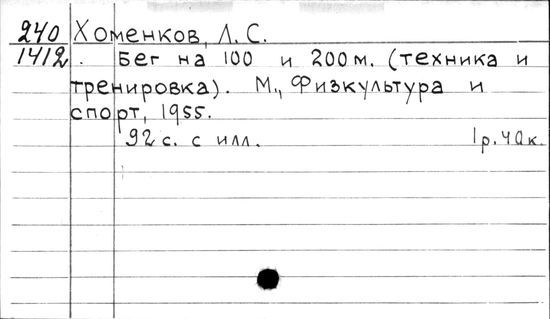 240 Хоменков, Л. С.
1412. Бег на 100 и 200 м. (техника и
тренировка). М., Физкультура и
спорт, 1955.
92 с. с илл. 1 р. 40 к.